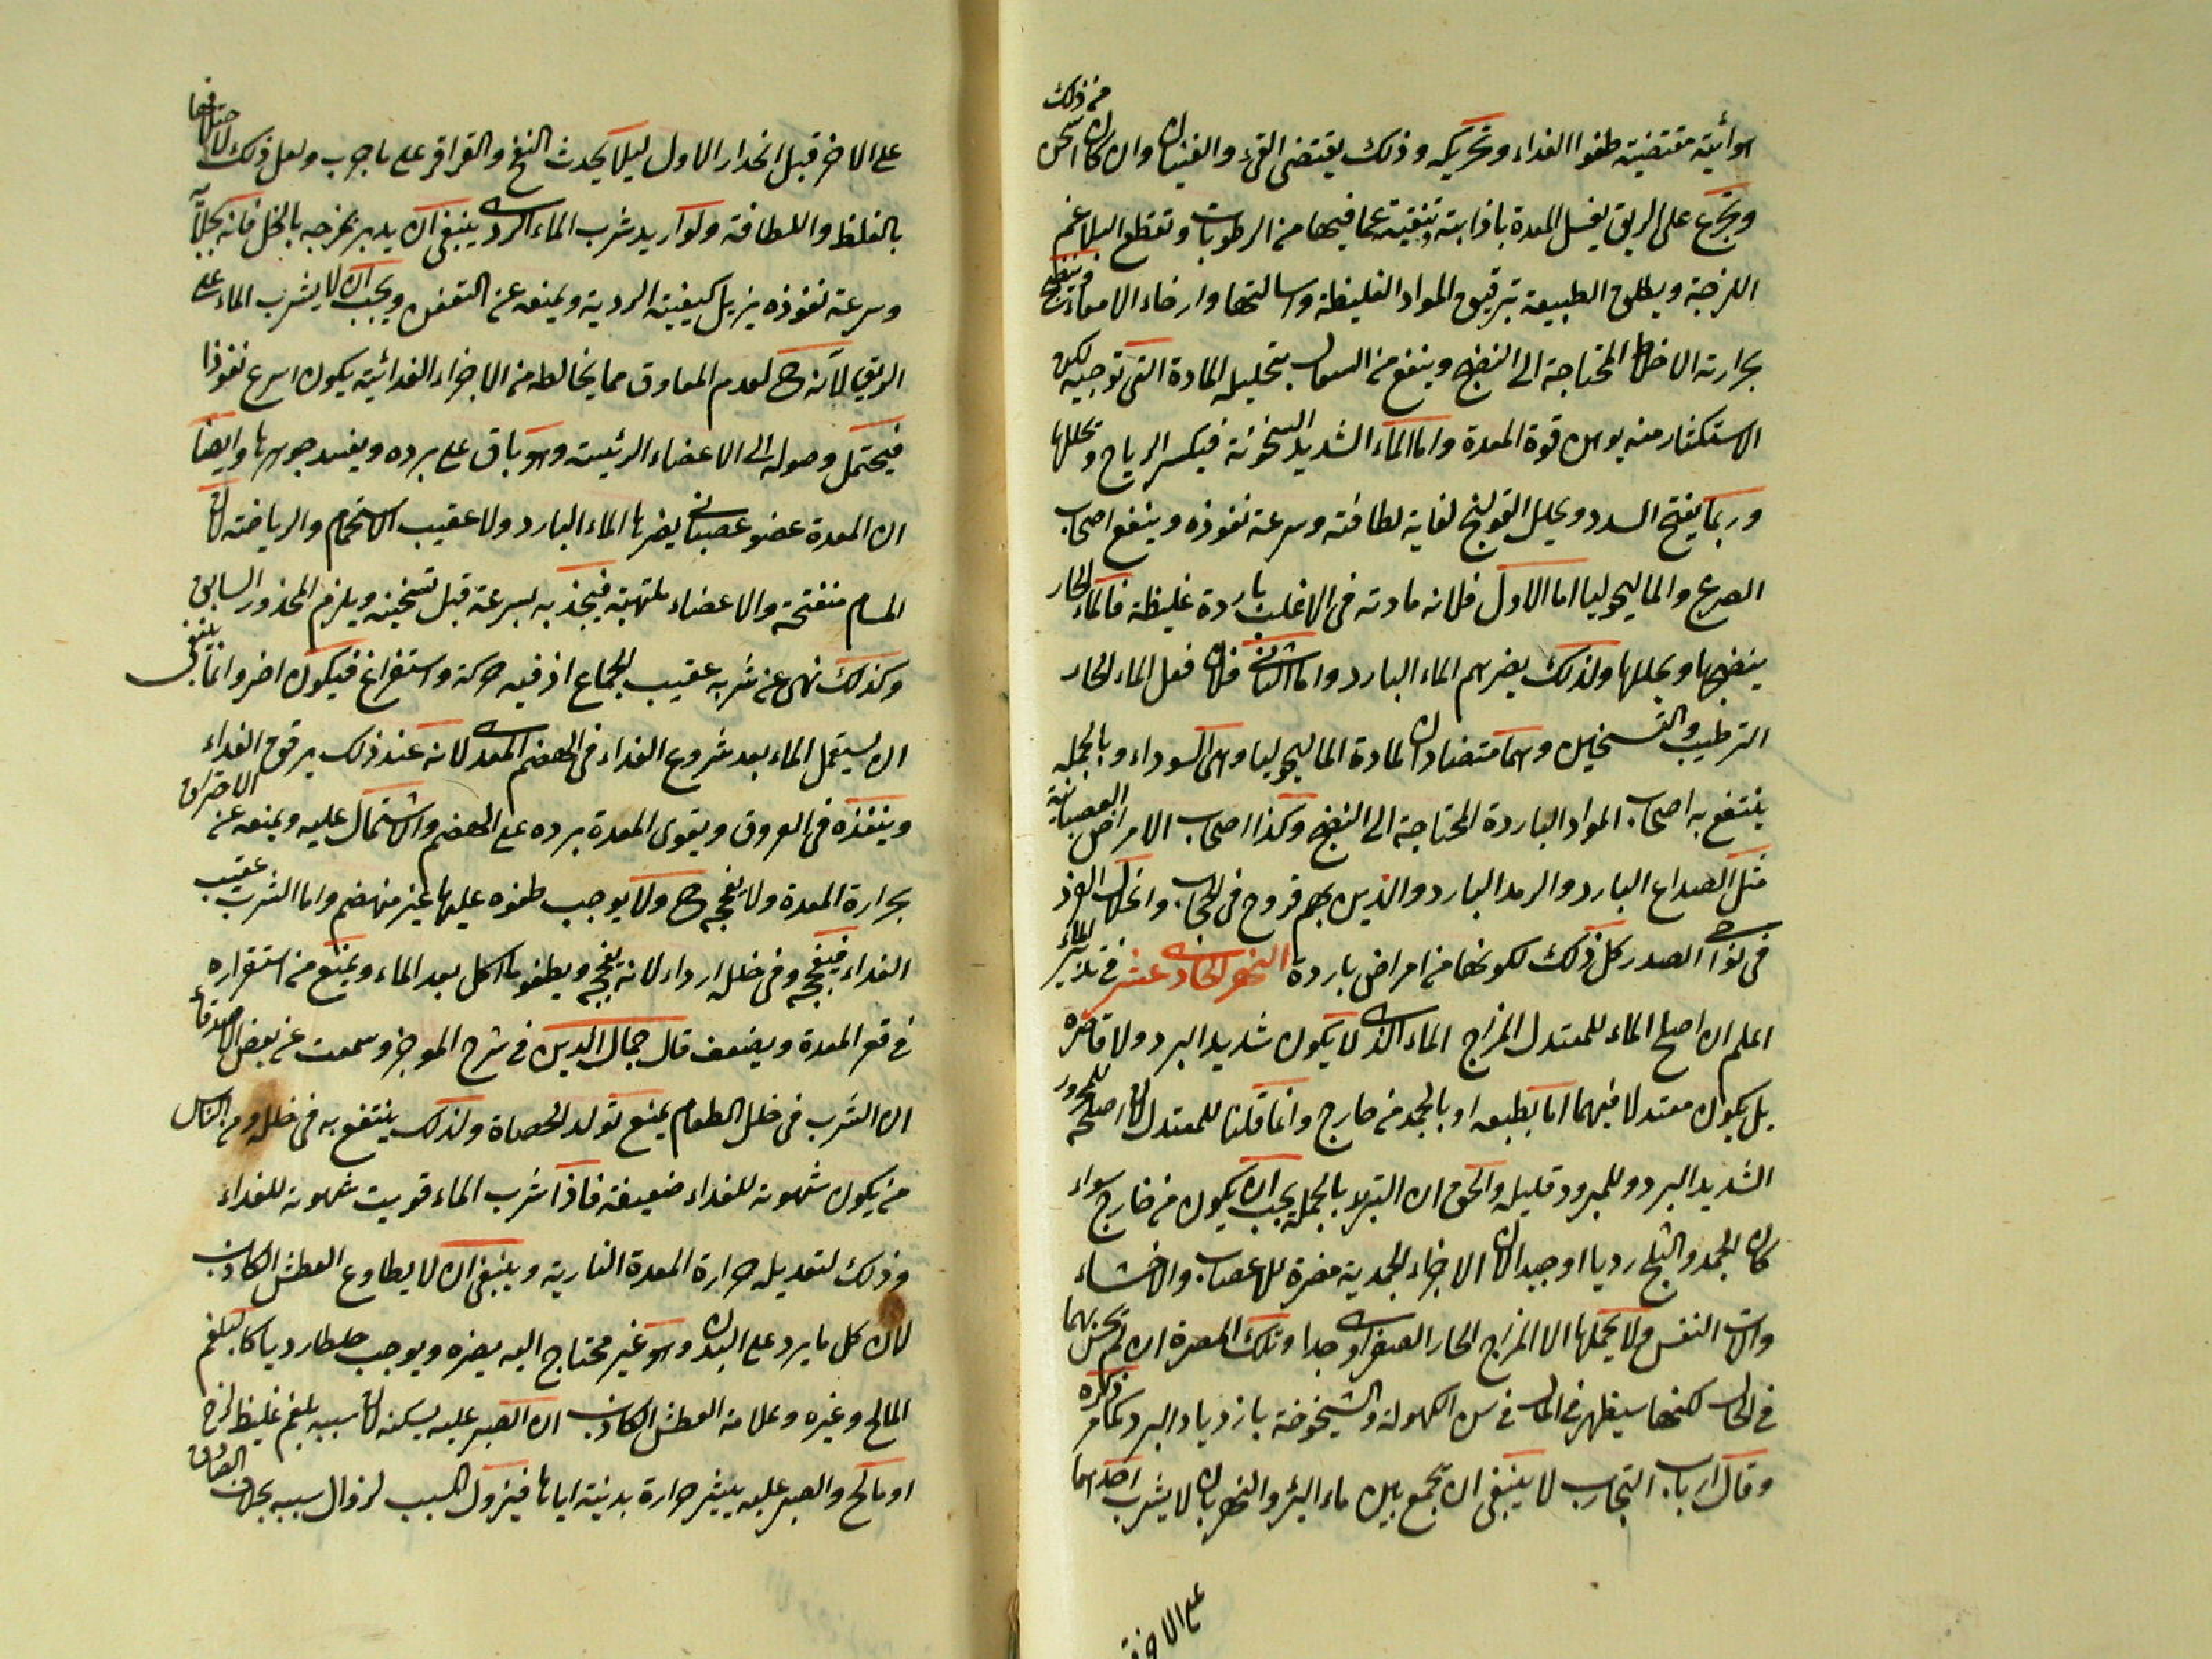 هوائية مقتضية طفو الغداء وتحريكه وذلك يقتضى القئ والغثيان وان كان اسخن من ذلك
وتجرع على الريق يغسل المعدة باذابته وتنقيته عما فيها من الرطوبات وتقطع البلاغم
اللزجة ويطلق الطبيعة بترقيق المواد الغليظة واسالتها وارخاء الامعاء وتنضج
بحرارته الاخلاط المحتاجة الى النضج وينفع من السعال بتحليله المادة التى توجبه لكن
الاستكثار منه يوهن قوة المعدة واما الماء الشديد السخونة فيكسر الرياح وتحللها
وربما يفتح السدد ويحلل القولنج لغاية لطافته وسرعة نفوذه وينفع اصحاب
الصرع والماليخوليا اما الاول فلانه مادته فى الاغلب باردة غليظة فالماء الحار
ينضجها ويحللها ولذلك يضرهم الماء البارد واما الثانى فلان فعل الماء الحار
الترطيب والتسخين وهما متضادان لمادة الماليخوليا وهى السوداء وبالجملة
ينتفع به اصحاب المواد الباردة المحتاجة الى النضج وكذا اصحاب الامراض العصبانية
مثل الصداع البارد والرمد البارد والذين بهم قروح فى الحجاب وانحلال الفرد
فى نواحى الصدر كل ذلك لكونها من امراض باردة النهر الحادى عشر فى تدبير الماء
اعلم ان اصلح الماء للمعتدل المزاج الماء الذى لا يكون شديد البرد ولا فاتره
بل يكون معتدلا فيهما اما بطبعه او بالجمد من خارج وانما قلنا للمعتدل لان اصلحه للمحرور
الشديد البرد وللمبرود قليله والحق ان التبريد بالجملة يجب ان يكون من خارج سواء
كان الجمد والثلج رديا او جيدا لان الاجزاء الجمدية مضرة للاعصاب والاحشاء
والات النفس ولا يحملها الا المزاج الحار الصفراوى جدا وتلك المضرة ان لم تحس بها
فى الحال لكنها سيظهر فى المال فى سن الكهولة والشيخوخة بازدياد البرد كما مر ذكره
وقال ارباب التجارب لا ينبغى ان تجمع بين ماء البئر والنهر بان لا يشرب احدهما
على الاخر قبل
على الاخر قبل انحدار الاول ليلا يحدث النفخ والقراقر على ما جرب ولعل ذلك لاختلافها
بالغلظ واللطافة ولو اريد شرب الماء الردى ينبغى ان يدبر بمزجه بالخل فانه بجلائه
وسرعة نفوذه يزيل كيفيته الردية ويمنعه عن التعفن ويجب ان لا يشرب الماء على
الريق لانه ح لعدم المعاوق مما يخالطه من الاجزاء الغدائية يكون اسرع نفوذا
فيحتمل وصوله الى الاعضاء الرئيسة وهو باق على برده ويفسد جوهرها وايضا
ان المعدة عضو عصبانى يضرها الماء البارد ولا عقيب الاستحمام والرياضة لان
المسام منفتحة والاعضاء ملتهبة فيجذبه بسرعة قبل تسخينه ويلزم المحذور السابق
وكذلك نهى عن شربه عقيب الجماع اذ فيه حركة واستفراغ فيكون اضر وانما ينبغى
ان يستعمل الماء بعد شروع الغداء فى الهضم المعدى لانه عند ذلك يرقق الغداء
وينفذه فى العروق ويقوى المعدة ببرده على الهضم والاشتمال عليه ويمنعه عن الاحتراق
بحرارة المعدة ولا يفججه ح ولا يوجب طفوه عليها غير منهضم واما الشرب عقيب
الغداء فيفججه وفى خلله ارداء لانه يفججه ويطفو ما اكل بعد الماء ويمنع من استقراره
فى قعر المعدة ويضعف قال جمال الدين فى شرح الموجز وسمعت عن بعض الاصدقاء
ان الشرب فى خلل الطعام يمنع تولد الحصاة ولذلك ينتفع به فى خلله ومن الناس
من يكون شهوته للغداء ضعيفة فاذا شرب الماء قويت شهوته للغداء
وذلك لتعديله حرارة المعدة النارية وينبغى ان لا يطاوع العطش الكاذب
لان كل ما يرد على البدن وهو غير محتاج اليه يضره ويوجب خلطا رديا كالبلغم
المالح وغيره وعلامة العطش الكاذب ان الصبر عليه يسكنه لان سببه بلغم غليظ لزج
او مالح والصبر عليه يثير حرارة بدنية اياها فيزول المسبب لزوال سببه بخلاف الصادق